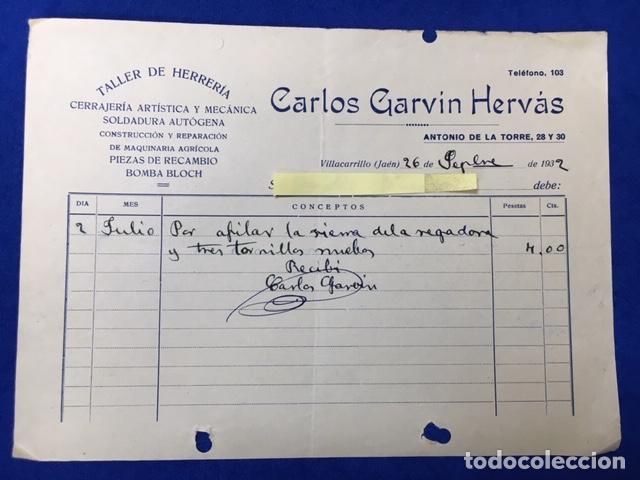 TALLER DE HERRERÍA
CERRAJERÍA ARTÍSTICA Y MECÁNICA
SOLDADURA AUTÓGENA
CONSTRUCCIÓN Y REPARACIÓN
DE MAQUINARIA AGRÍCOLA
PIEZAS DE RECAMBIO
BOMBA BLOCH
Teléfono, 103
Carlos Garvin Hervás
ANTONIO DE LA TORRE, 28 Y 30
Villacarrillo (Jaén) 26 de Sepbre de 1932
S debe:
DIA MES CONCEPTOS Pesetas Cts.
2 Julio Por afilar la sierra de la segadora
y tres tornillos nuebos 4,00
Recibi
Carlos Garvin
todocoleccion.net